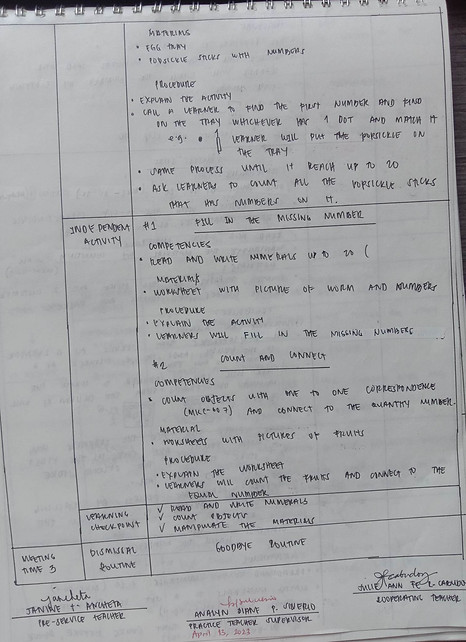 MATERIALS
• EGG TRAY
• POPSICKLE STICKS WITH NUMBERS
PROCEDURE
• EXPLAIN THE ACTIVITY
• CALL A LEARNER TO FIND THE FIRST NUMBER AND FIND
ON THE TRAY WHICHEVER HAS 1 DOT AND MATCH IT
e.g. • 1 LEARNER WILL PUT THE POPSICKLE ON
THE TRAY
• SAME PROCESS UNTIL IT REACH UP TO 20
• ASK LEARNERS TO COUNT ALL THE POPSICKLE STICKS
THAT HAS NUMBERS ON IT.
INDEPENDENT
ACTIVITY
#1 FILL IN THE MISSING NUMBER
COMPETENCIES
• READ AND WRITE NUMERALS UP TO 20 (
MATERIALS
• WORKSHEET WITH PICTURE OF WORM AND NUMBERS
PROCEDURE
• EXPLAIN THE ACTIVITY
• LEARNERS WILL FILL IN THE MISSING NUMBERS
#2 COUNT AND CONNECT
COMPETENCIES
• COUNT OBJECTS WITH ONE TO ONE CORRESPONDENCE
AND CONNECT TO THE QUANTITY NUMBER.
MATERIAL
• WORKSHEETS WITH PICTURES OF FRUITS
PROCEDURE
• EXPLAIN THE WORKSHEET
• LEARNERS WILL COUNT THE FRUITS AND CONNECT TO THE
EQUAL NUMBER
LEARNING
CHECKPOINT
✓ READ AND WRITE NUMERALS
✓ COUNT OBJECTS
✓ MANIPULATE THE MATERIALS
MEETING
TIME 3
DISMISSAL
ROUTINE
GOODBYE ROUTINE
JANINE F. ANCHETA
PRE-SERVICE TEACHER
ANALYN DIANE P.
PRACTICE TEACHER SUPERVISOR
JULIE ANN
COOPERATING TEACHER